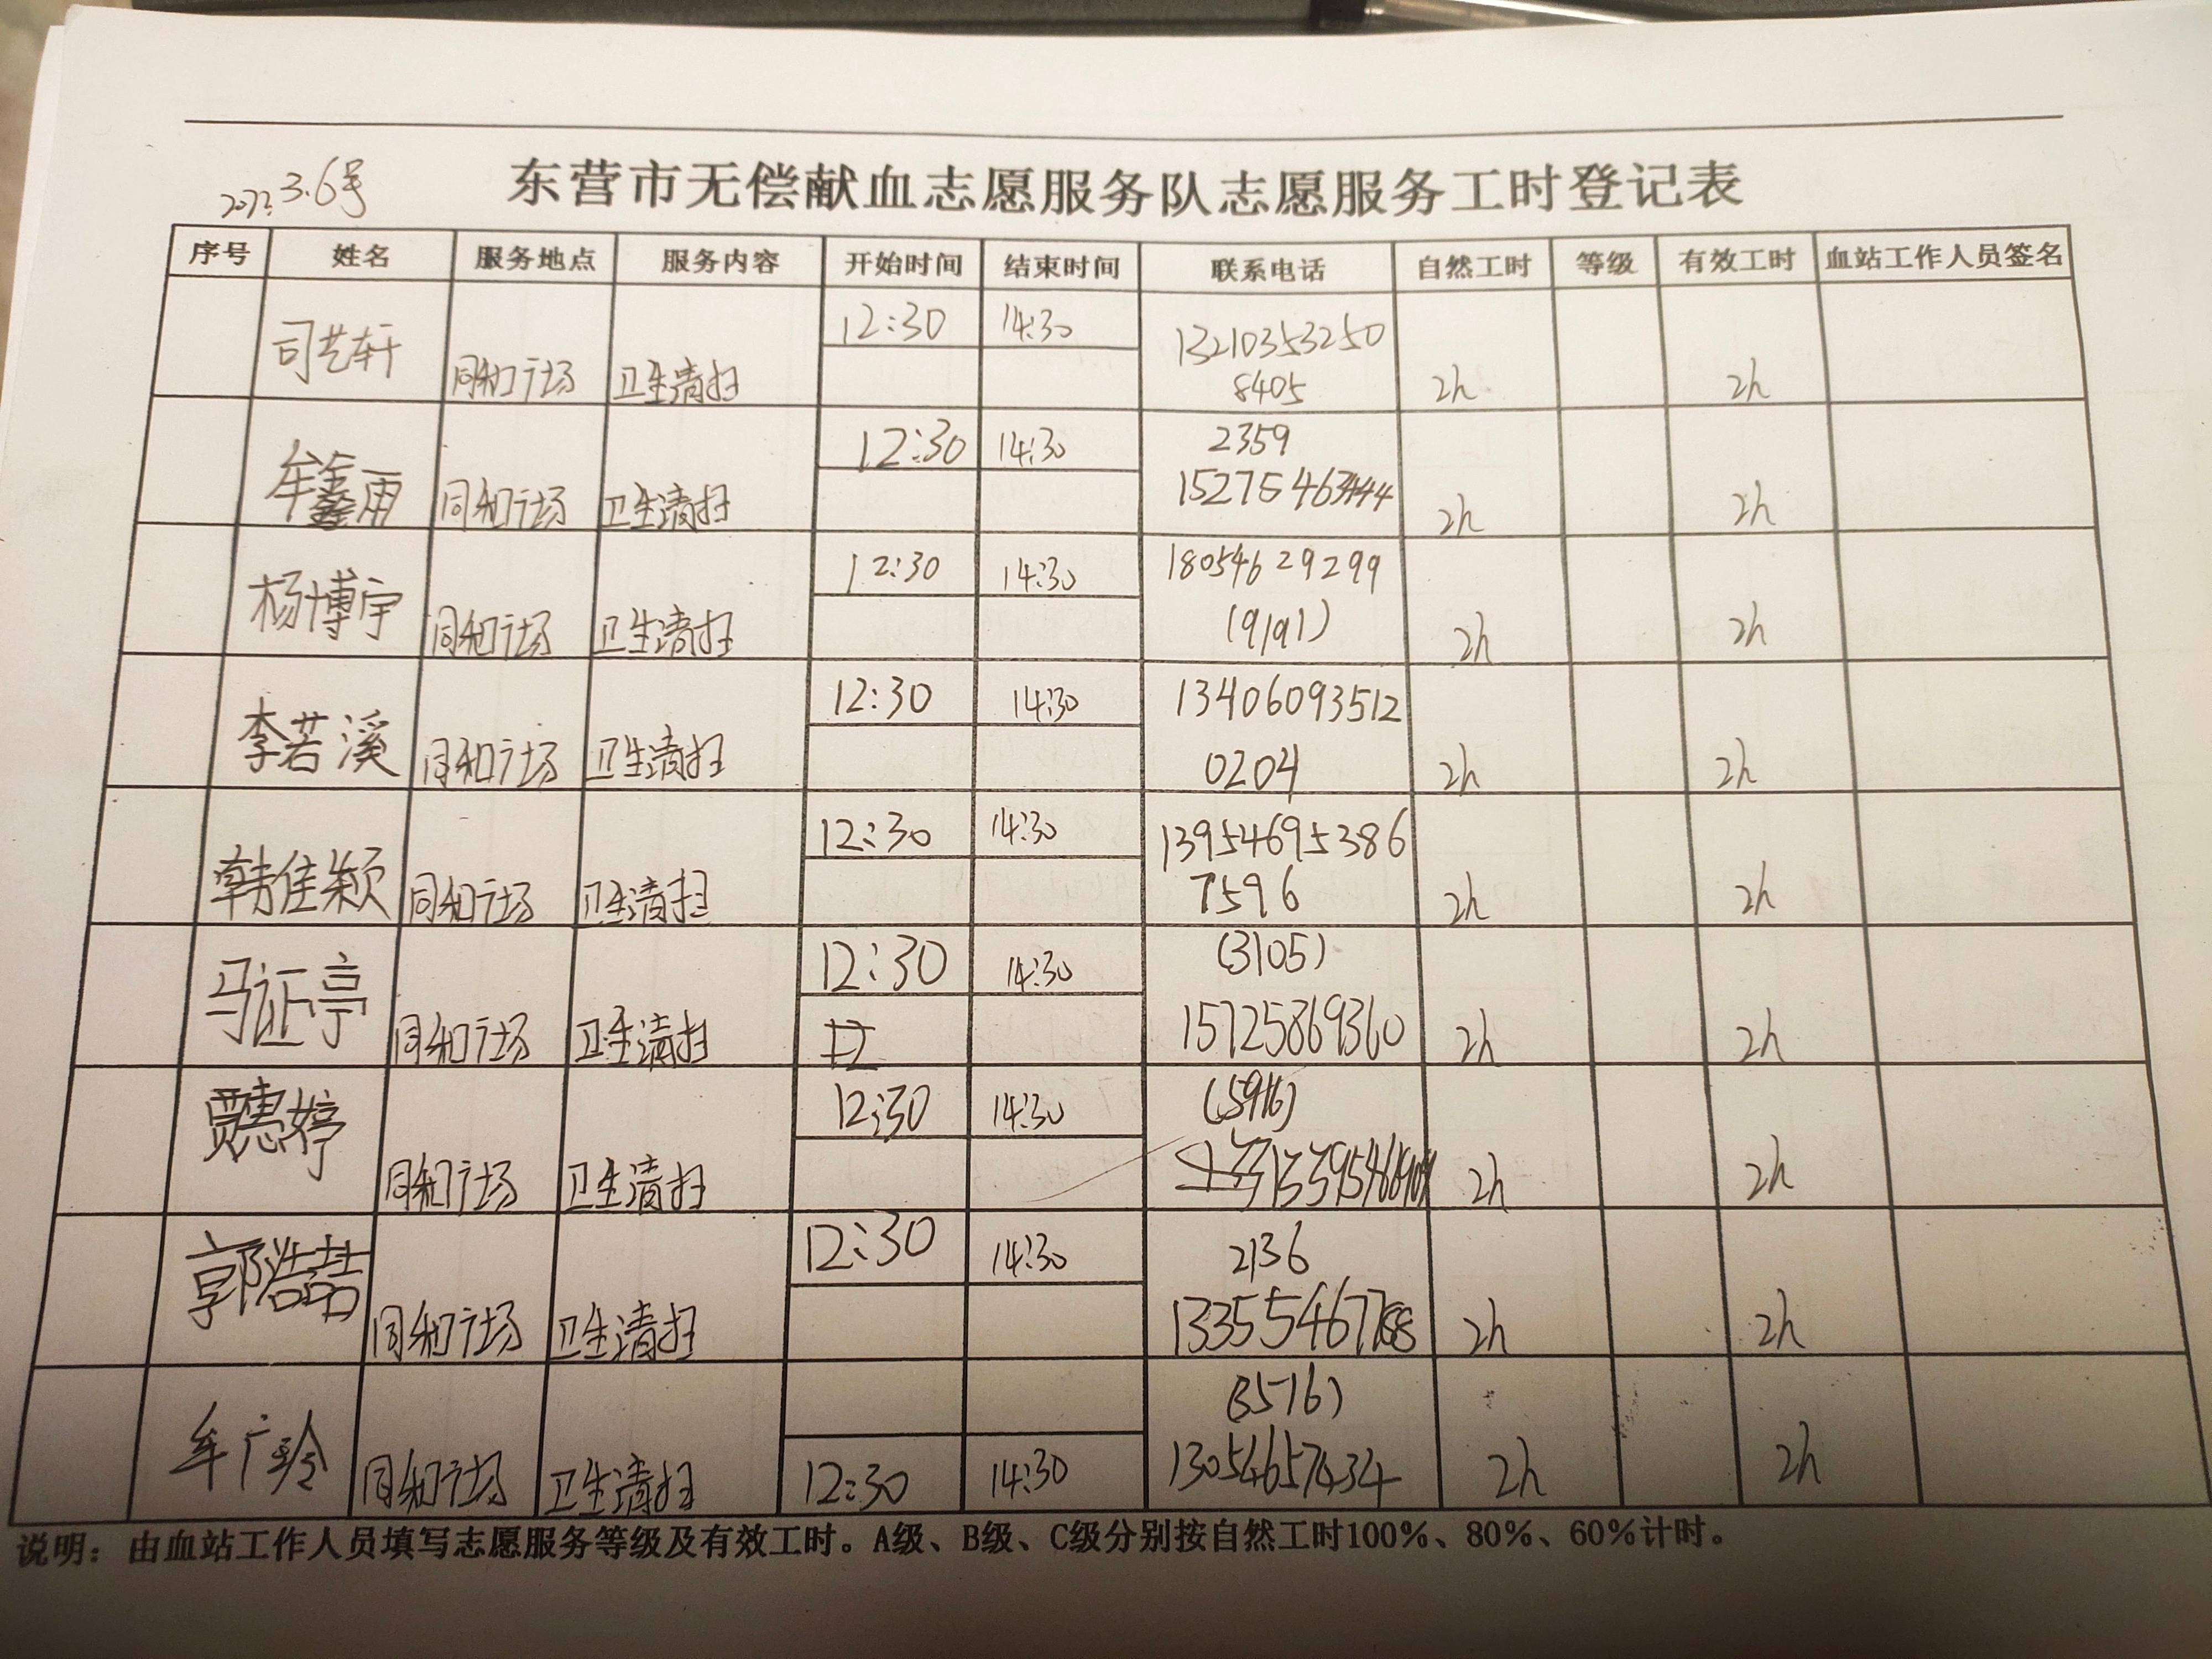 3.6号
东营市无偿献血志愿服务队志愿服务工时登记表
序号 姓名 服务地点 服务内容 开始时间 结束时间 联系电话 自然工时 等级 有效工时 血站工作人员签名
司艺轩 同和广场 卫生清扫 12:30 14:30 13210353250
8405 2h 2h
牟鑫雨 同和广场 卫生清扫 12:30 14:30 2359
2h 2h
杨博宇 同和广场 卫生清扫 12:30 14:30 18054629299
(9191) 2h 2h
李若溪 同和广场 卫生清扫 12:30 14:30 13406093512
0204 2h 2h
韩佳颖 同和广场 卫生清扫 12:30 14:30 13954695386
7596 2h 2h
马证亭 同和广场 卫生清扫 12:30 14:30 (3105)
15725869360 2h 2h
贾惠婷 同和广场 卫生清扫 12:30 14:30
2h 2h
郭浩喆 同和广场 卫生清扫 12:30 14:30 2136
2h 2h
牟广玲 同和广场 卫生清扫 12:30 14:30 (3576)
13054657434 2h 2h
说明：由血站工作人员填写志愿服务等级及有效工时。A级、B级、C级分别按自然工时100%、80%、60%计时。